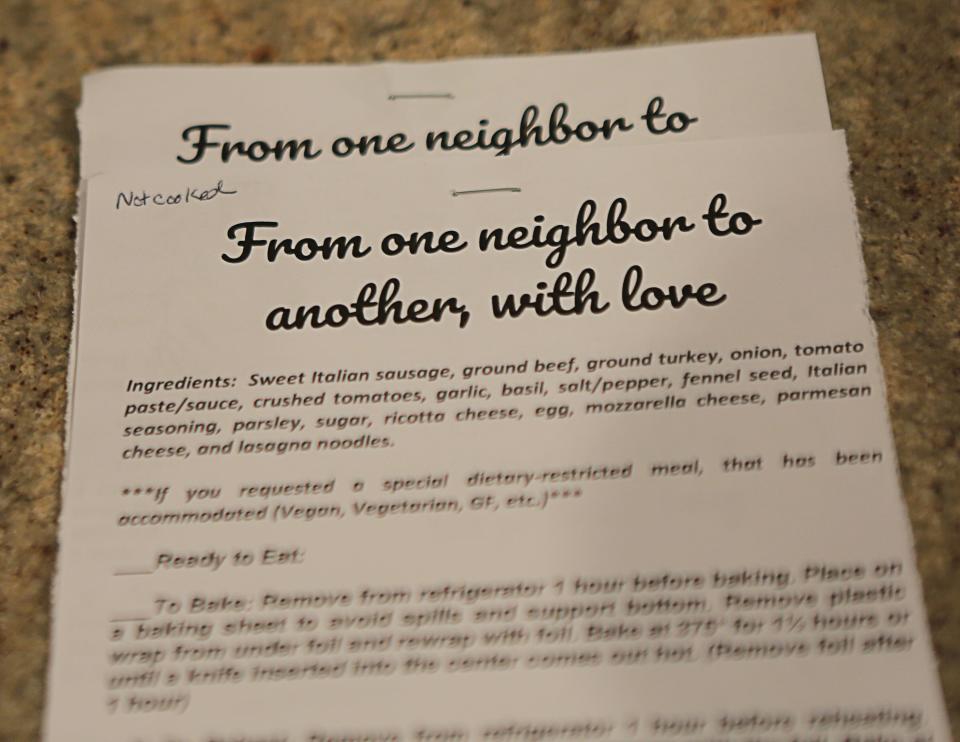 From one neighbor to
Not cooked
From one neighbor to
another, with love
Ingredients: Sweet Italian sausage, ground beef, ground turkey, onion, tomato
paste/sauce, crushed tomatoes, garlic, basil, salt/pepper, fennel seed, Italian
seasoning, parsley, sugar, ricotta cheese, egg, mozzarella cheese, parmesan
cheese, and lasagna noodles.
***If you requested a special dietary-restricted meal, that has been
accommodated (Vegan, Vegetarian, GF, etc.)***
___Ready to Eat:
___To Bake: Remove from refrigerator 1 hour before baking. Place on
a baking sheet to avoid spills and support bottom. Remove plastic
wrap from under foil and rewrap with foil. Bake at 375° for 1½ hours or
until a knife inserted into the center comes out hot. (Remove foil after
1 hour)
Remove from refrigerator 1 hour before reheating.